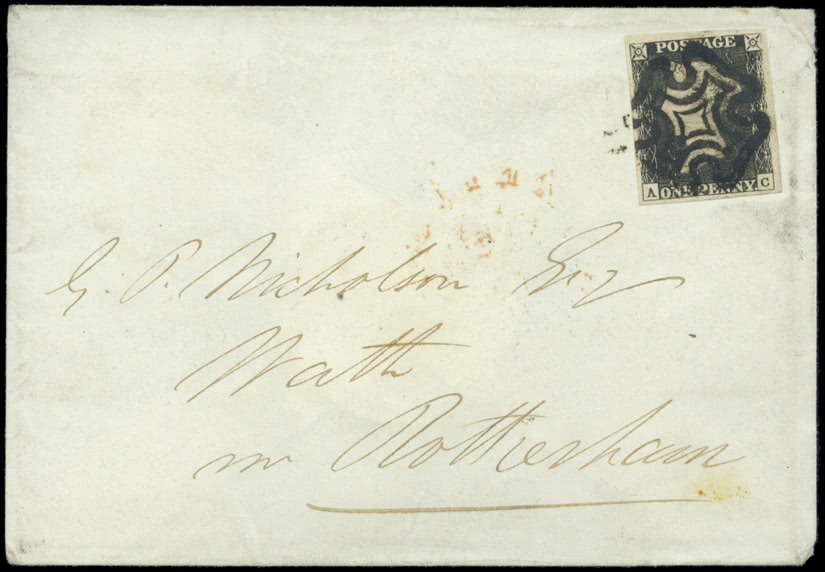 POSTAGE
A ONE PENNY C
G. P. Nicholson Esq
Wath
nr Rotherham